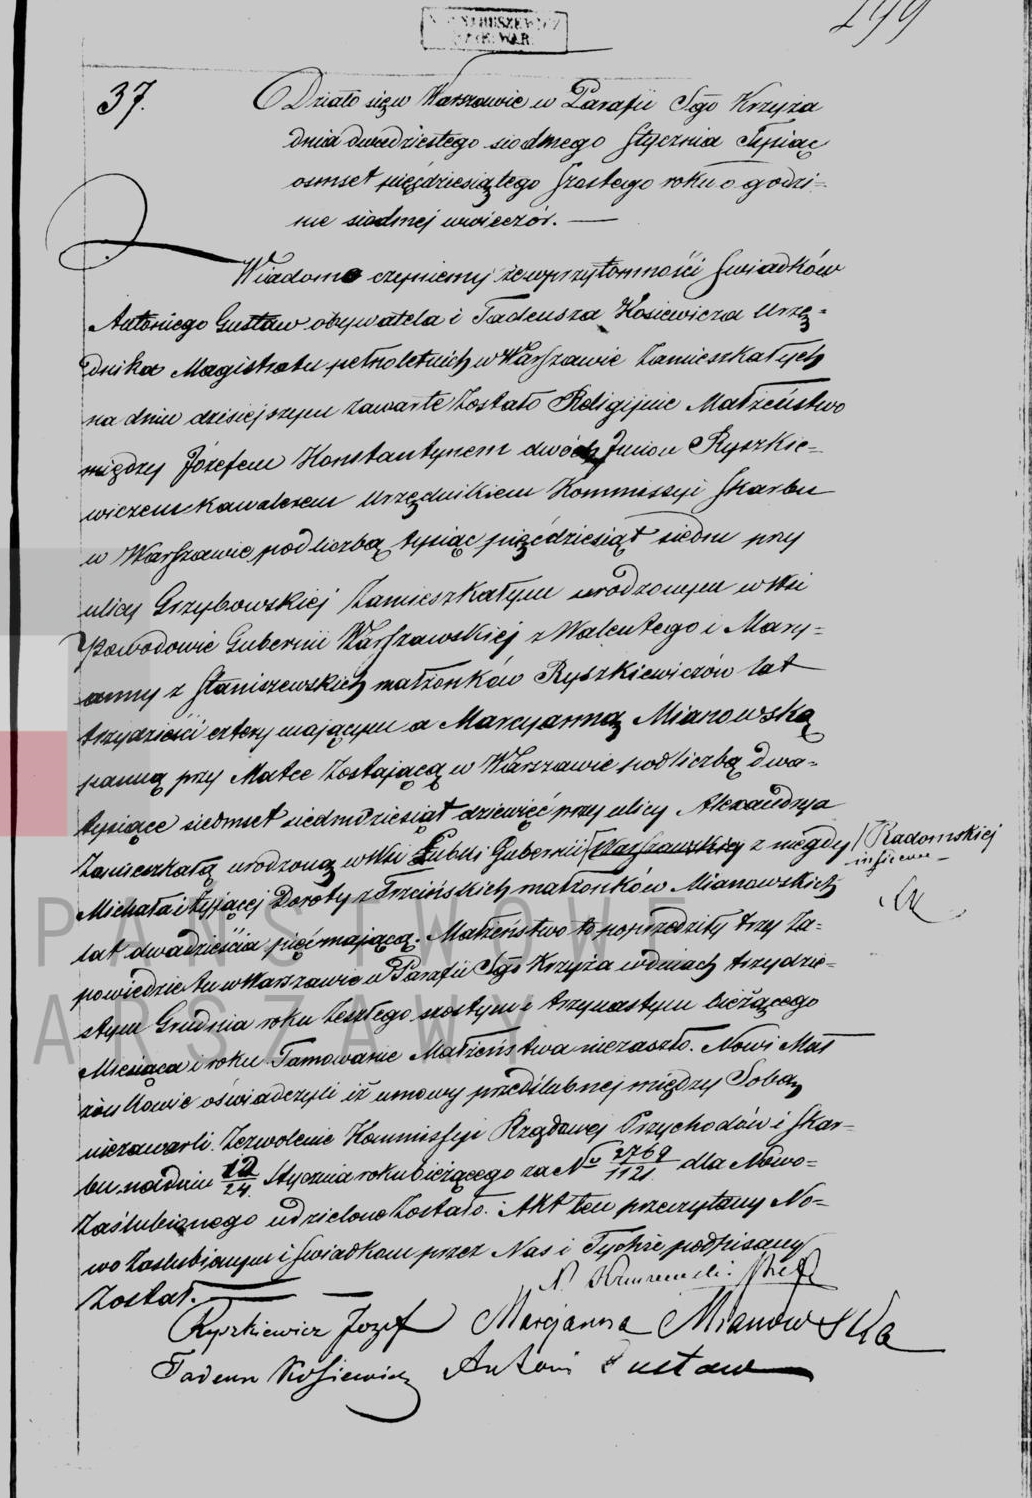 199
37.
Działo się w Warszawie w Parafii Sgo Krzyża
dnia dwudziestego siodmego Stycznia Tysiąc
osmset pięćdziesiątego szostego roku o godzi=
nie siodmej wwieczór. —
Wiadomo czyniemy że wprzytomności swiadków
Antoniego Gustaw obywatela i Tadeusza Kosiewicza Urzę=
dnika Magistratu pełnoletnich w Warszawie zamieszkałych
na dniu dzisiejszym zawarte zostało Religijnie Małżeństwo
między Józefem Konstantynem dwóch Imion Ryszkie=
wiczem kawalerem urzędnikiem Kommissyi Skarbu
w Warszawie pod liczbą tysiąc pięćdziesiąt siedm przy
ulicy Grzybowskiej zamieszkałym urodzonym w Wsi
Powodowie Gubernii Warszawskiej z Walentego i Mary=
anny z Staniszewskich małżonków Ryszkiewiczów lat
trzydzieści cztery mającym a Marcyanną Mianowską
panną przy Matce zostającą w Warszawie pod liczbą dwa=
tysiące siedmset siedmdziesiąt dziewięć przy ulicy Alexandrya
zamieszkałą urodzoną w Wsi Gubernii Warszawskiej z niegdy / Radomskiej
Michała i żyjącej Doroty z Trzcińskich małżonków Mianowskich
lat dwadzieścia pięć mającą. Małżeństwo to poprzedziły trzy za=
powiedzie tu w Warszawie w Parafii Sgo Krzyża w dniach trzydzie=
stym Grudnia roku zeszłego szostym i trzynastym bieżącego
Miesiąca i roku. Tamowanie Małżeństwa niezaszło. Nowi Mał
żonkowie oświadczyli iż umowy przedślubnej między Sobą
niezawarli. Zezwolenie Kommissyi Rządowej Przychodów i Skar=
bu na dniu 12/24 Stycznia roku bieżącego za No 2769/1121 dla Nowo=
Zaślubionego udzielone zostało. Akt ten przeczytany No=
wo Zaslubionym i swiadkom przez Nas i Tychże podpisany
został. —
Ryszkiewicz Jozef Marcjanna Mianowska
Tadeusz Kosiewicz Antoni Gustaw
PAŃSTWOWE
ARSZAWY